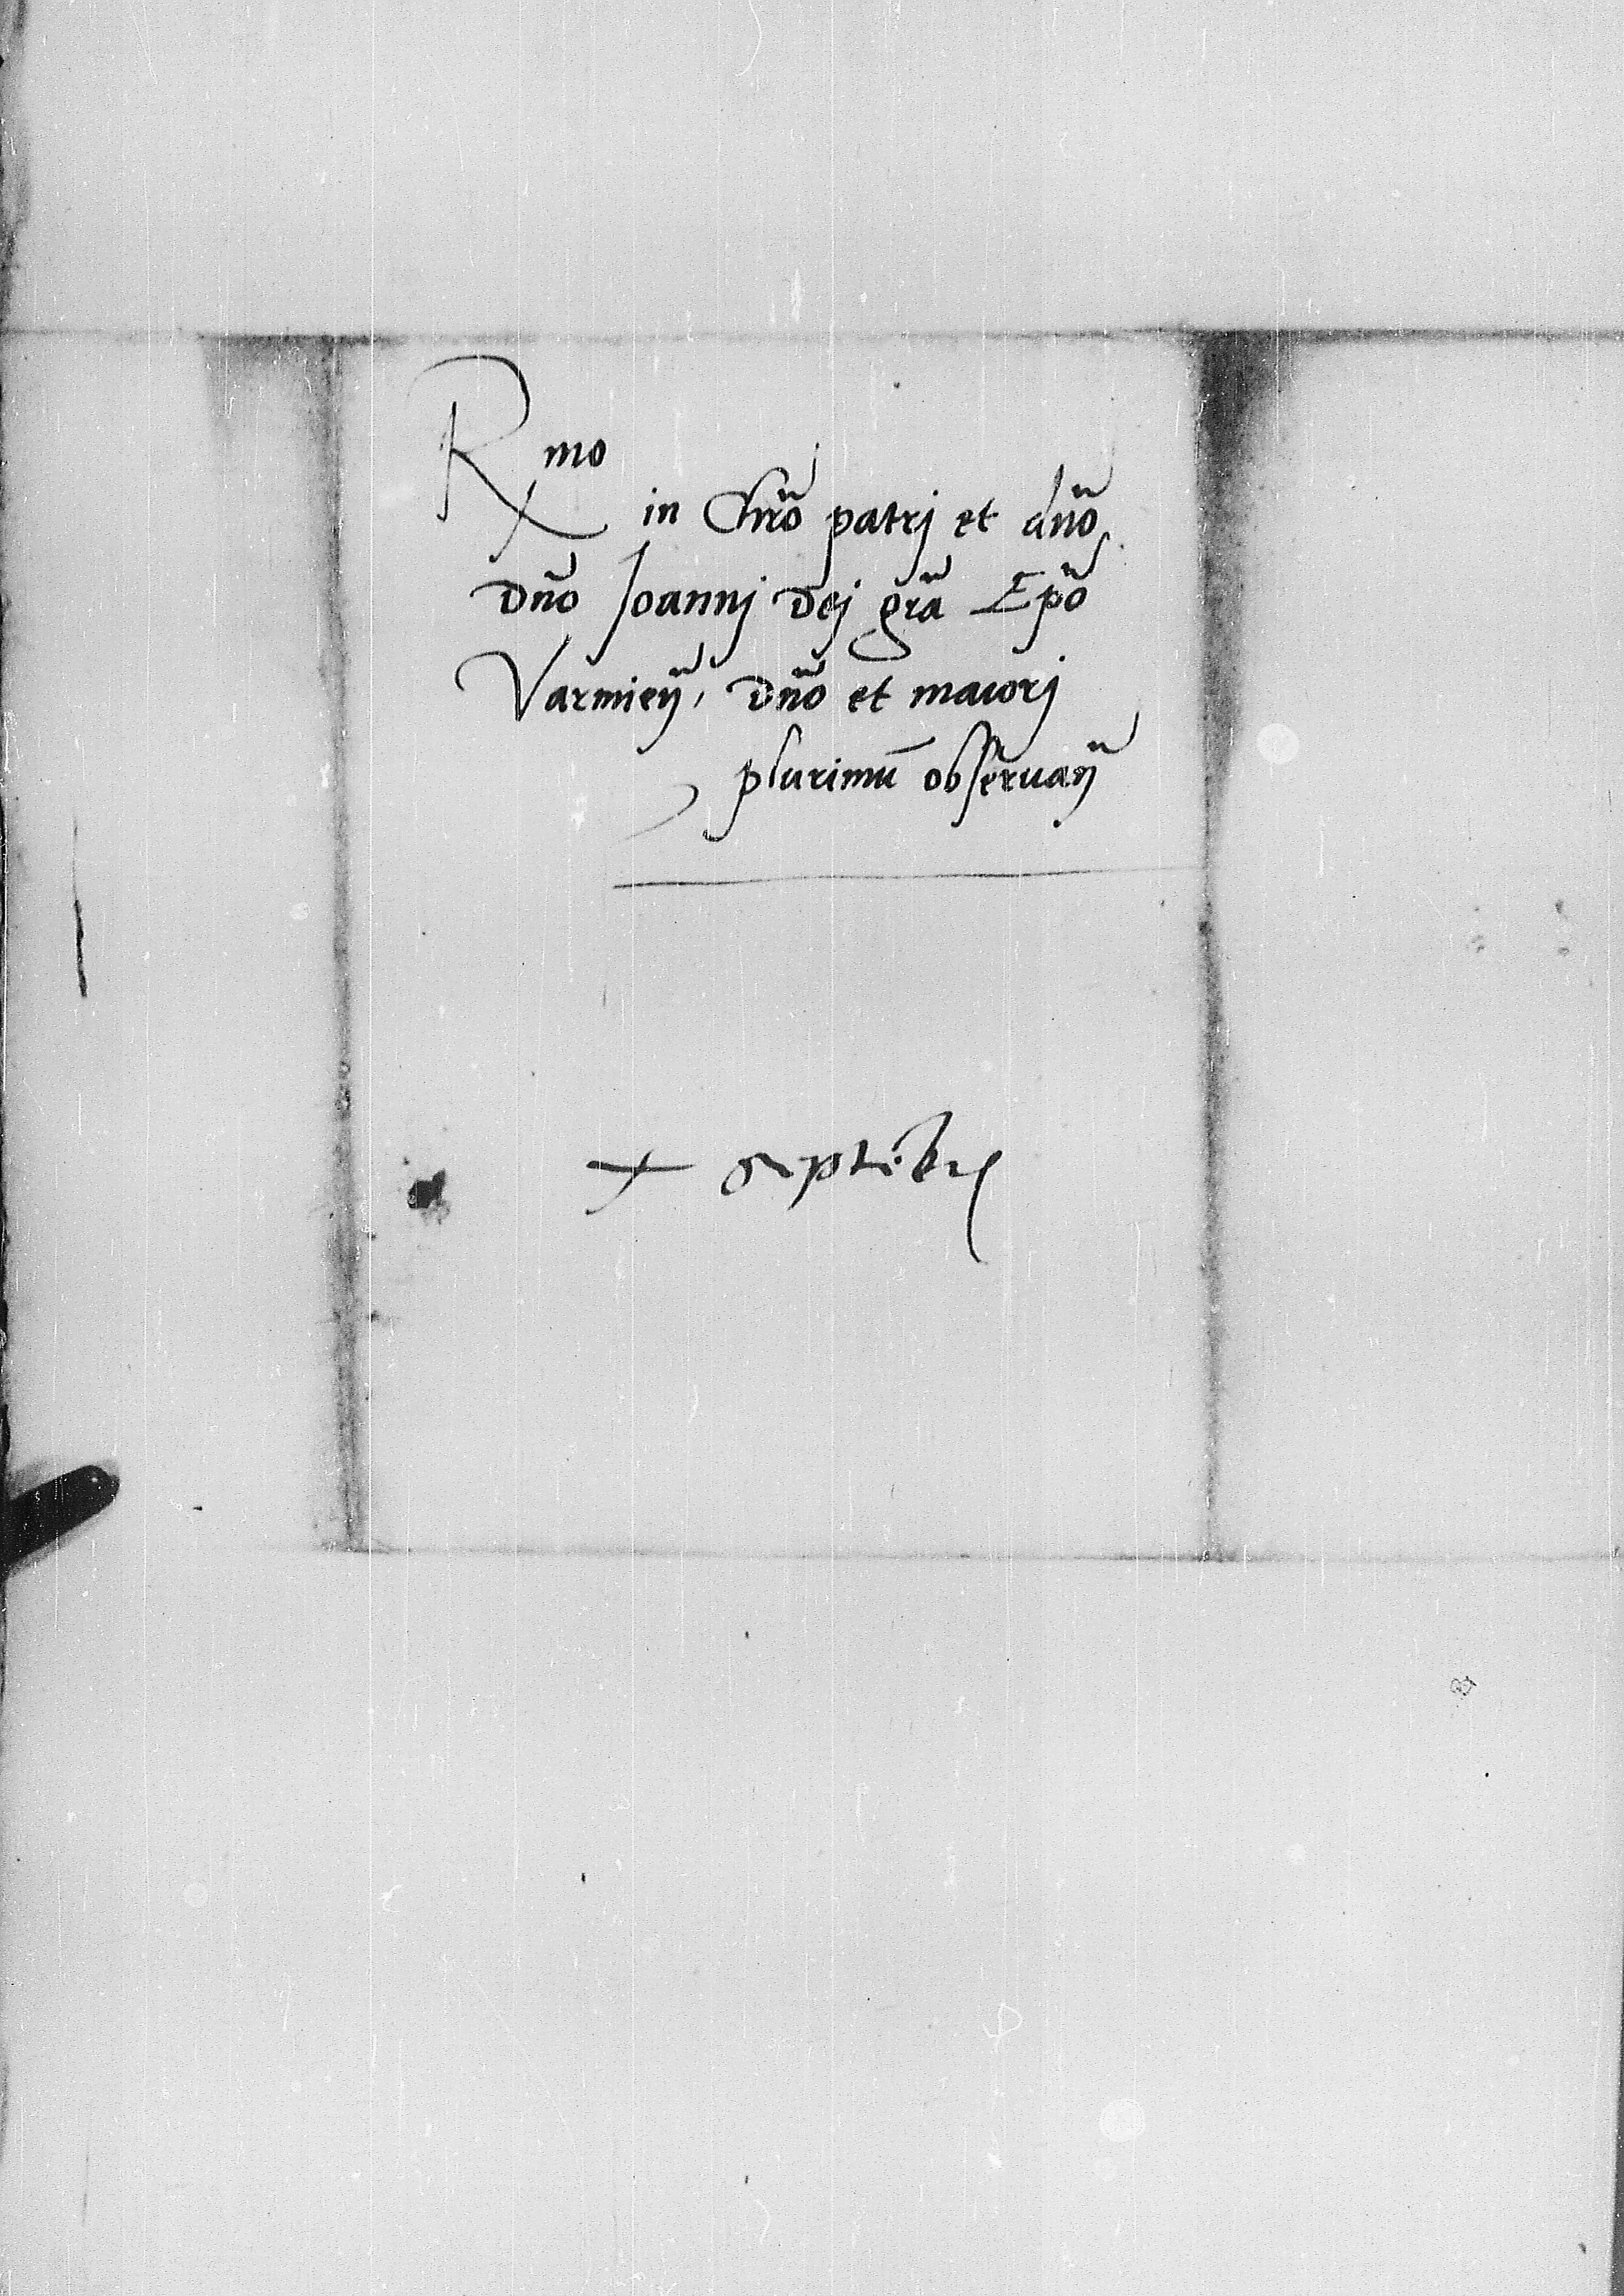 Rmo
in Chr̃o patrj et dño
Dño Joannj Dej grã Ep̃o
Varmieñ, Dño et maiorj
plurimũ obserṽañ
x septẽbr